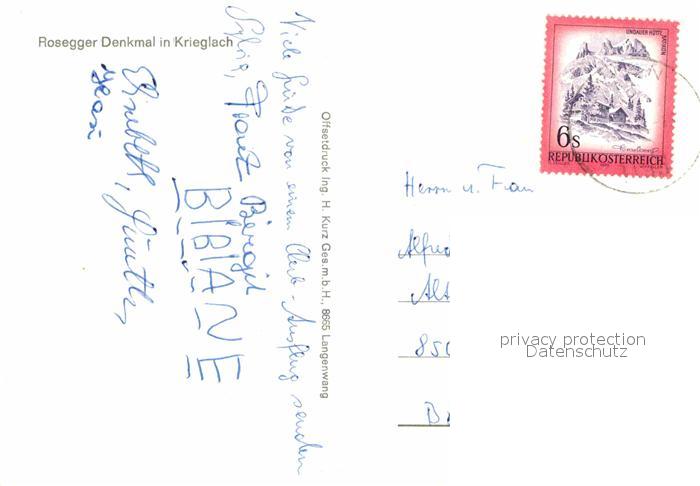 Rosegger Denkmal in Krieglach
Viele Grüße von einem Club-Ausflug senden
Sylvia, Franz Birgit
BIBIANE
Elisabeth, Günther,
Offsetdruck Ing. H. Kurz Ges.m.b.H., 8665 Langenwang
LINDAUER HÜTTE, RÄTIKON
6s
REPUBLIK ÖSTERREICH
Herrn u. Frau
Alfre
Alt
850
B
privacy protection
Datenschutz